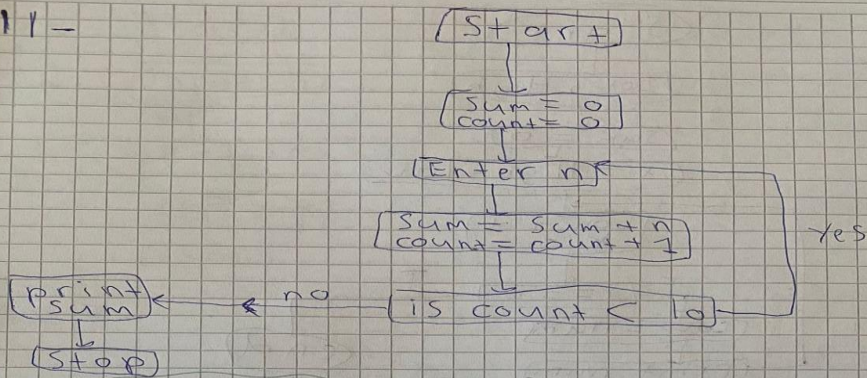 11-
Start
sum = 0
count = 0
Enter n
sum = sum + n
count = count + 1
yes
is count < 10
no
print
sum
Stop